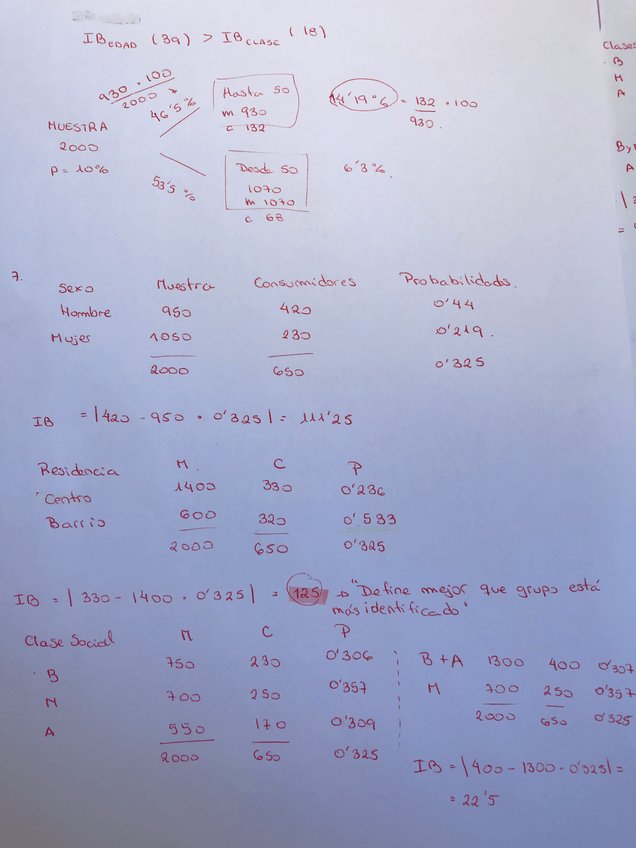 IB EDAD (39) > IB CLASE (18)
930 · 100
2000
46'5 %
MUESTRA
2000
P = 10%
53'5 %
Hasta 50
m 930
c 132
14'19 % = 132 · 100
930.
Desde 50
1070
m 1070
c 68
6'3 %.
7.
Sexo Muestra Consumidores Probabilidades.
Hombre 950 420 0'44
Mujes 1050 230 0'219.
2000 650 0'325
IB = |420 - 950 · 0'325| = 111'25
Residencia M. C P
Centro 1400 330 0'236
Barrio 600 320 0'533
2000 650 0'325
IB = | 330 - 1400 · 0'325 | = 125 → "Define mejor que grupo está
más identificado"
Clase Social M C P
B 750 230 0'306
M 700 250 0'357
A 550 170 0'309
2000 650 0'325
B + A 1300 400 0'307
M 700 250 0'357
2000 650 0'325
IB = |400 - 1300 · 0'325| =
= 22'5
Clases
· B
M
A
A